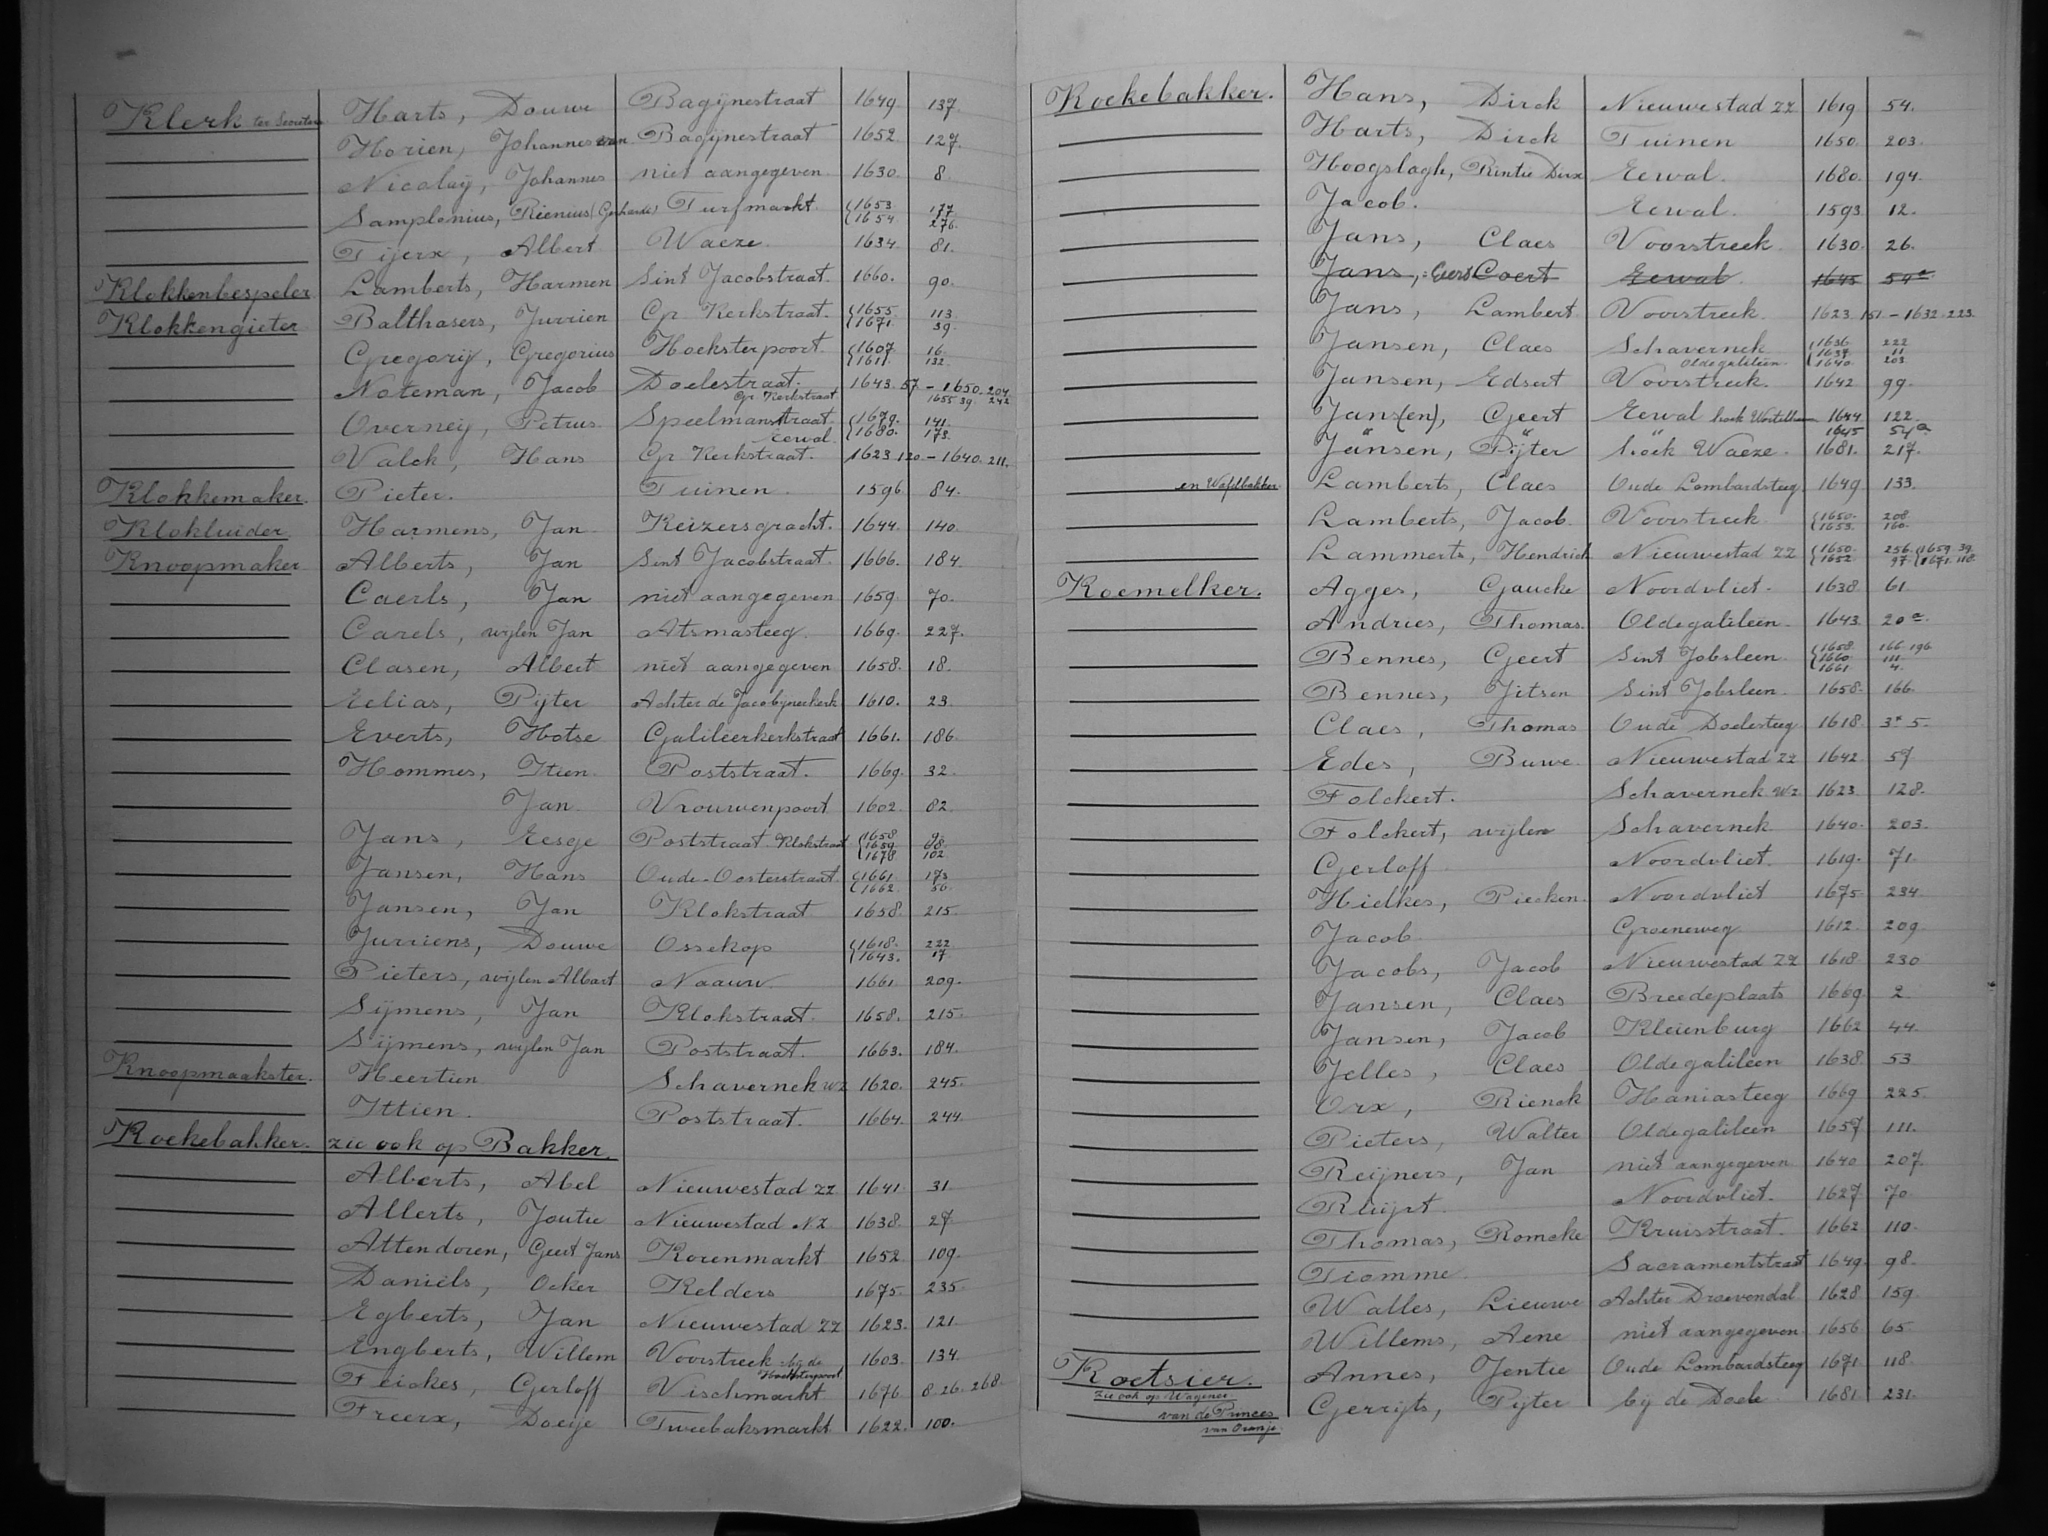 Klerk ter Secretarie Harts, Douwe Bagijnestraat 1649 137.
Horien, Johannes van Bagijnestraat 1652. 127.
Nicolaij, Johannes niet aangegeven 1630. 8.
Samplonius, Rienius (Gerhardi) Turfmarkt. 1653. 177
1654. 276.
Tijerx, Albert Waeze. 1634. 81.
Klokkenbespeler Lamberts, Harmen Sint Jacobstraat. 1660. 90.
Klokkengieter Balthasers, Jurrien Gr. Kerkstraat. 1655. 113
1671. 39.
Gregorij, Gregorius Hoeksterpoort. 1607. 16.
1611. 132.
Noteman, Jacob Doelestraat. 1643. 57 - 1650. 204.
Gr. Kerkstraat 1655 39. 242
Overneij, Petrus. Speelmanstraat. 1679. 141.
Eewal. 1680. 173.
Valck, Hans Gr Kerkstraat. 1623 120 - 1640. 211.
Klokkemaker. Pieter. Tuinen. 1596 84.
Klokluider Harmens, Jan Keizersgracht. 1644. 140.
Knoopmaker Alberts, Jan Sint Jacobstraat. 1666. 184.
Caerls, Jan niet aangegeven 1659. 70.
Carels, wijlen Jan Atsmasteeg. 1669. 227.
Clasen, Albert niet aangegeven 1658. 18.
Eelias, Pijter Achter de Jacobijnerkerk 1610. 23
Everts, Hotse Galileerkerkstraat 1661. 186.
Hommes, Itien. Poststraat. 1669. 32.
Jan. Vrouwenpoort 1602. 82.
Jans, Eesge Poststraat. Klokstraat 1658. 98.
1659. 68.
1678. 102
Jansen, Hans Oude-Oosterstraat. 1661. 193
1662. 56.
Jansen, Jan Klokstraat 1658. 215.
Jurriens, Douwe Ossekop 1618. 222
1643. 17
Pieters, wijlen Albart Naauw. 1661. 209.
Sijmens, Jan Klokstraat. 1658. 215.
Sijmens, wijlen Jan Poststraat. 1663. 184.
Knoopmaakster. Heertien Schavernek WZ 1620. 245.
Ittien. Poststraat. 1664. 244.
Koekebakker. zie ook op Bakker.
Alberts, Abel Nieuwestad ZZ 1641. 31.
Allerts, Joutie Nieuwestad NZ 1638. 27.
Attendoren, Geert Jans Korenmarkt 1652 109.
Daniels, Ocker Kelders 1675. 235.
Egberts, Jan Nieuwestad ZZ 1623. 121.
Engberts, Willem Voorstreek bij de 1603. 134.
Hoeksterpoort
Feickes, Gerloff Vischmarkt 1676. 8. 26. 268.
Freerx, Doeije Tweebaksmarkt. 1622. 100.
Koekebakker. Hans, Dirck Nieuwestad ZZ 1619 54.
Harts, Dirck Tuinen 1650. 203.
Hoogslagh, Rintie Dirx Eewal. 1680. 194.
Jacob. Eewal. 1593. 12.
Jans, Claes Voorstreek. 1630. 26.
Jans, Geert Coert Eewal 1645 54a
Jans, Lambert Voorstreek. 1623. 151. - 1632. 223.
Jansen, Claes Schavernek 1636. 222
1637. 11
Oldegalileen. 1640. 203
Jansen, Edsert Voorstreek. 1642 99.
Jans(en), Geert Eewal hoek 1644 122.
" " " 1645 54a
Jansen, Pijter hoek Waeze. 1681. 217.
en Wafelbakker Lamberts, Claes Oude Lombardsteeg 1649 133.
Lamberts, Jacob. Voorstreek 1650. 208.
1653. 160.
Lammerts, Hendrick Nieuwestad ZZ 1650. 256. 1659. 39.
1652 97. 1671. 118.
Koemelker. Agges, Gaucke Noordvliet. 1638 61.
Andries, Thomas. Oldegalileen. 1643. 20a
Bennes, Geert Sint Jobsleen. 1658. 166. 196
1660. 111.
1661. 4.
Bennes, Jitsen Sint Jobsleen. 1658. 166.
Claes, Thomas Oude Doelesteeg 1618. 3 5.
Edes, Buwe. Nieuwestad ZZ 1642. 57
Folckert. Schavernek WZ 1623. 128.
Folckert, wijlen Schavernek 1640. 203.
Gerloff Noordvliet. 1619. 71.
Hielkes, Piecken. Noordvliet 1675. 234.
Jacob Groeneweg 1612. 209.
Jacobs, Jacob Nieuwestad ZZ 1618. 230
Jansen, Claes Breedeplaats 1669. 2.
Jansen, Jacob Kleienburg 1662 44.
Jelles, Claes Oldegalileen 1638. 53
Orx, Rienck Haniasteeg 1669 225.
Pieters, Walter Oldegalileen 1657 111.
Reijners, Jan niet aangegeven 1640 207.
Rluijrt. Noordvliet. 1627. 70
Thomas, Romcke Kruisstraat. 1662 110.
Tiomme. Sacramentstraat 1649. 98.
Walles, Lieuwe Achter Droevendal. 1628 159.
Willems, Aene niet aangegeven 1656 65.
Koetsier. Annes, Jentie Oude Lombardsteeg 1671. 118.
zie ook op Wagener.
van de Princes Gerrijts, Pijter bij de Doele 1681. 231.
van Oranje.